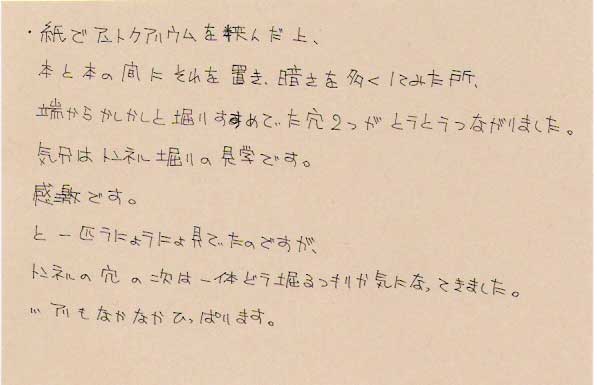 ・紙でアントクアリウムを挟んだ上、
本と本の間にそれを置き、暗さを多くしてみた所、
端からかしかしと堀りすすめていた穴2つがとうとうつながりました。
気分はトンネル堀りの見学です。
感激です。
と一匹うにょうにょ見ていたのですが、
トンネルの穴の次は一体どう堀るつもりか気になってきました。
…アリもなかなかひっぱります。